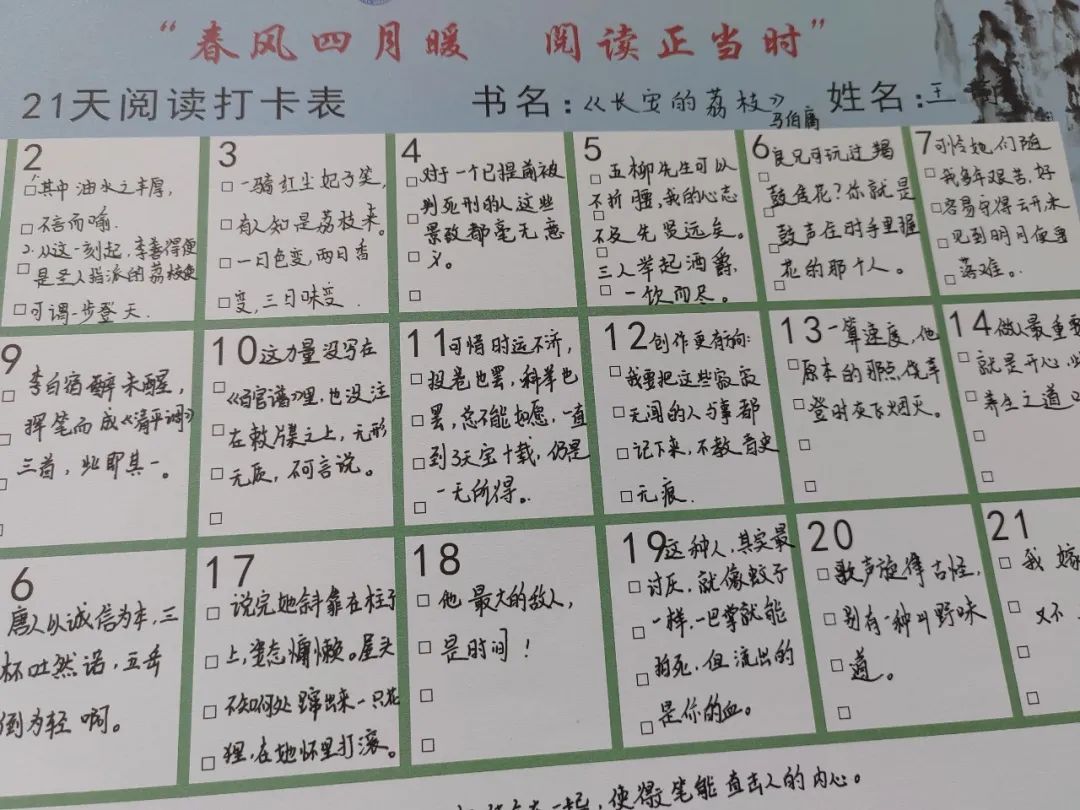 “春风四月暖 阅读正当时”
21天阅读打卡表 书名：《长安的荔枝》 姓名：王
马伯庸
2
其中油水之丰厚，
不言而喻.
2.从这一刻起，李善得便
是圣人指派的荔枝使
可谓一步登天.
3
一骑红尘妃子笑，
有人知是荔枝来。
一日色变，两日香
变，三日味变.
4
对于一个已提前被
判死刑的人这些
景致都毫无意
义。
5
五柳先生可以
不折腰，我的心志
不及先贤远矣。
三人举起酒爵，
一饮而尽。
6
良兄可玩过羯
鼓传花？你就是
鼓声住时手里握
花的那个人。
7
可怜她们随
我多年艰苦，好
容易守得云开，未
见到明月便要
落难。.
9
李白宿醉未醒，
挥笔而成《清平调》
三首，此即其一。
10
这力量没写在
《百官谱》里，也没注
在敕牒之上，无形
无质，不可言说。
11
可惜时运不济，
投卷也罢，科举也
罢，总不能如愿，一直
到了天宝十载，仍是
一无所得。.
12
创作更有方向：
我要把这些寂寂
无闻的人与事都
记下来，不教青史
无痕.
13
一算速度，他
原本的那点侥幸
登时灰飞烟灭。
14
做人最重要
就是开心，此
养生之道
6
唐人以诚信为本，三
杯吐然诺，五岳
倒为轻啊。
17
说完她斜靠在柱子
上，姿态慵懒。屋头
不知何处蹿出来一只花
狸，在她怀里打滚。
18
他最大的敌人，
是时间！
19
这种人，其实最
讨厌，就像蚊子
一样，一巴掌就能
拍死，但流出的
是你的血。
20
歌声旋律古怪，
别有一种叫野味
道。
21
我嫁
又不
一起，使得笔能直击人的内心。